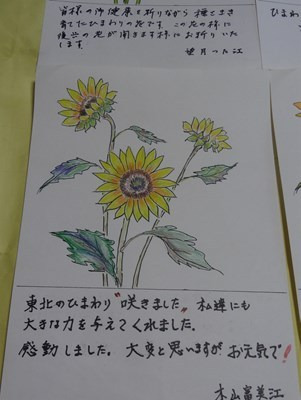 皆様の御健康を祈りながら種をまき
育てたひまわりの花です この花の様に
後世の花が開きます様にお祈りいた
します
望月つた江
東北のひまわり〝咲きました〟私達にも
大きな力を与えてくれました。
感動しました。大変と思いますが お元気で!
木山富美江
ひまわ